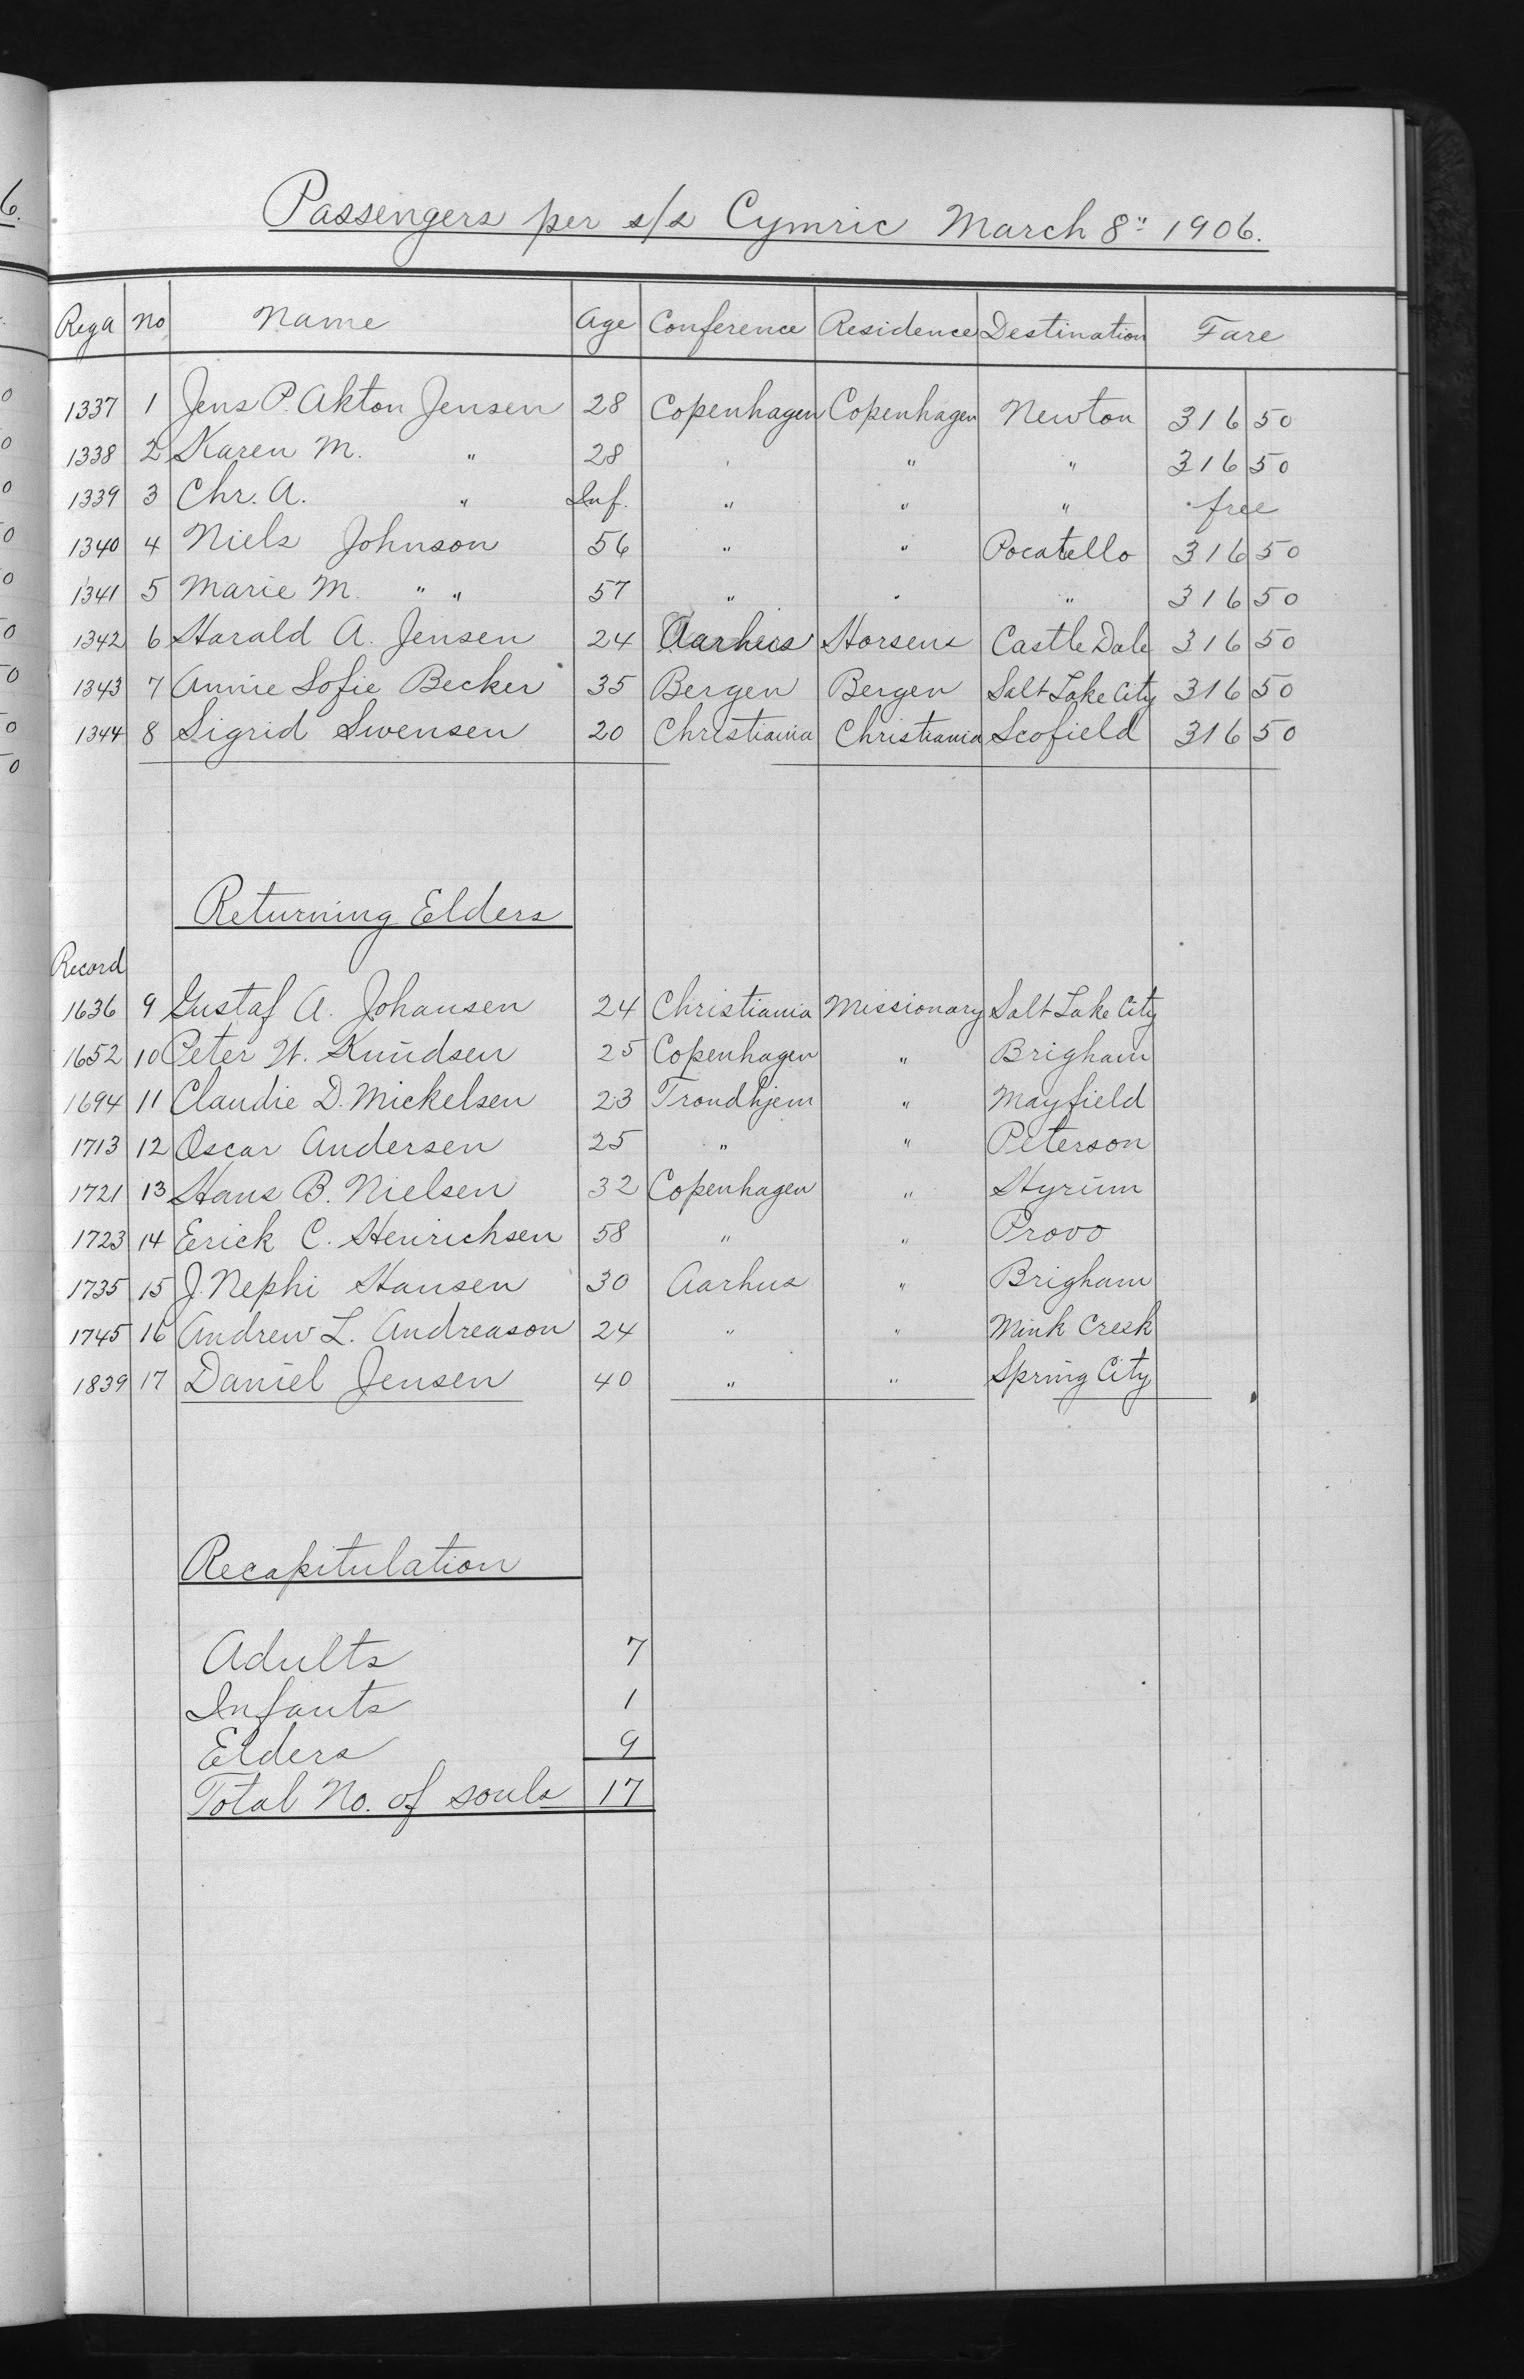 6.
Passengers per s/s Cymric March 8" 1906.
Rega No Name Age Conference Residence Destination Fare
1337 1 Jens P. Akton Jensen 28 Copenhagen Copenhagen Newton 316 50
1338 2 Karen M. " 28 " " " 316 50
1339 3 Chr. A. " Inf. " " " free
1340 4 Niels Johnson 56 " " Pocatello 316 50
1341 5 Marie M. " " 57 " " " 316 50
1342 6 Harald A. Jensen 24 Aarhus Horsens Castle Dale 316 50
1343 7 Annie Sofie Becker 35 Bergen Bergen Salt Lake City 316 50
1344 8 Sigrid Swensen 20 Christiania Christiania Scofield 316 50
Returning Elders
Record
1636 9 Gustaf A. Johansen 24 Christiania Missionary Salt Lake City
1652 10 Peter W. Knudsen 25 Copenhagen " Brigham
1694 11 Claudie D. Mickelsen 23 Trondhjem " Mayfield
1713 12 Oscar Andersen 25 " " Peterson
1721 13 Hans B. Nielsen 32 Copenhagen " Hyrum
1723 14 Erick C. Henrichsen 58 " " Provo
1735 15 J. Nephi Hansen 30 Aarhus " Brigham
1745 16 Andrew L. Andreason 24 " " Mink Creek
1839 17 Daniel Jensen 40 " " Spring City
Recapitulation
Adults 7
Infants 1
Elders 9
Total No. of souls 17